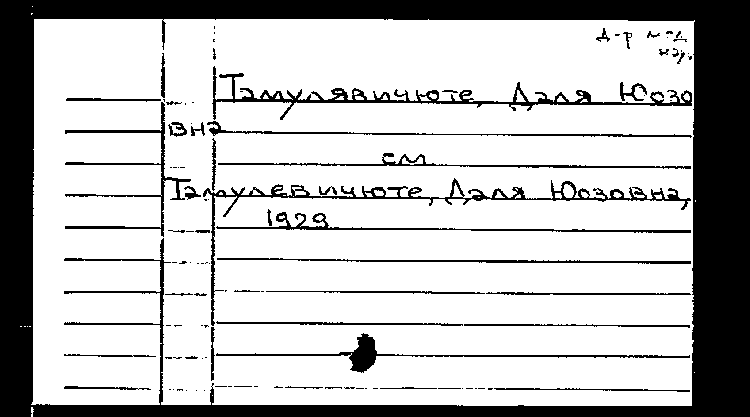 д-р мед
наук
Тамулявичюте, Даля Юозо
вна
см.
Тамулевичюте, Даля Юозовна,
1929